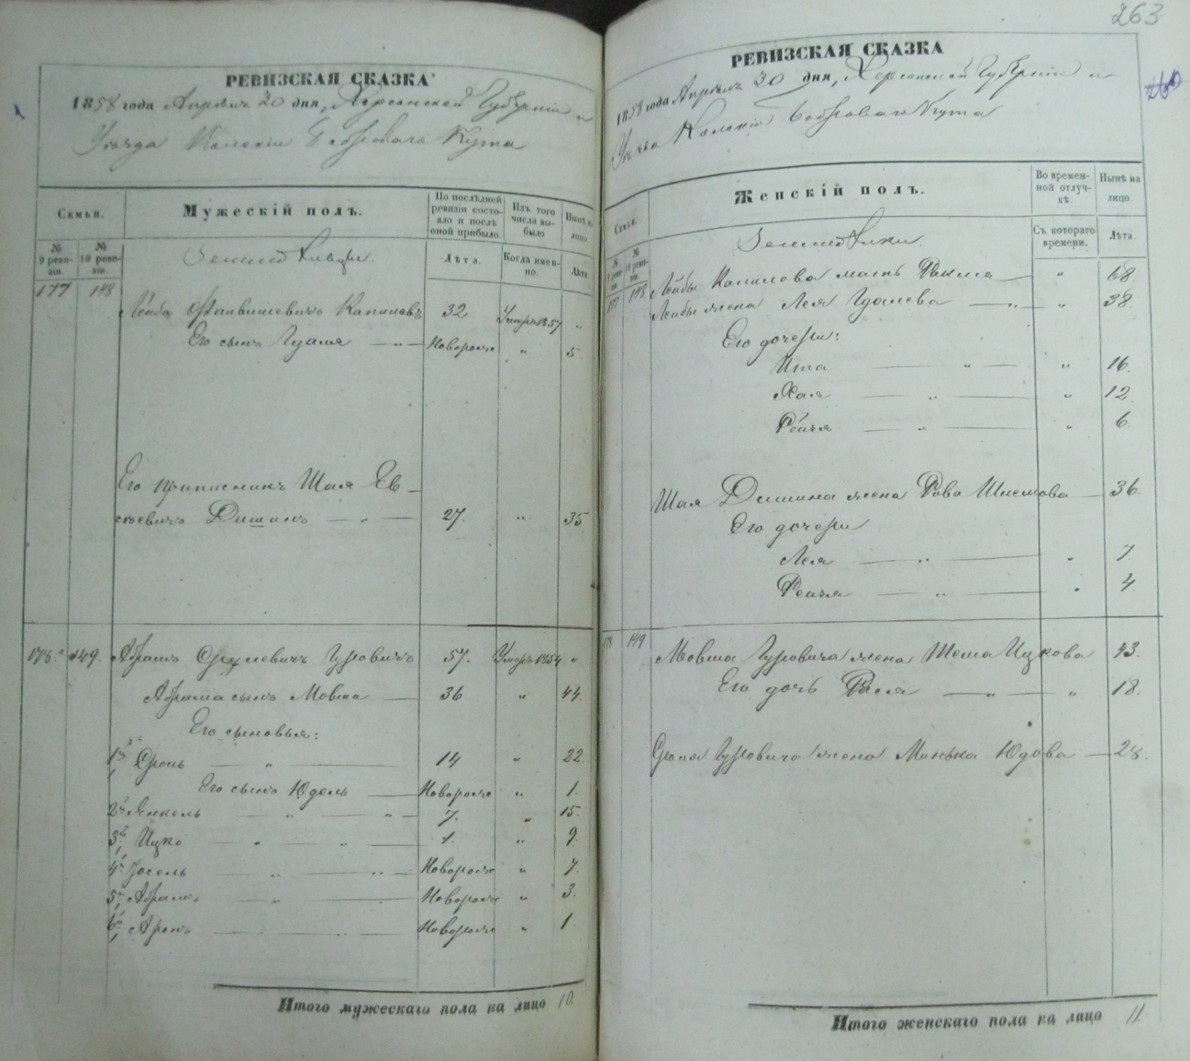 РЕВИЗСКАЯ СКАЗКА
1858 года Апреля 30 дня, Херсонской Губерніи и
Уезда Колоніи Боброваго Кута
Семьи.
Мужескій полъ.
По послѣдней ревизіи состояло и послѣ оной прибыло.
Изъ того числа выбыло
Нынѣ на лицо
№ 9 ревизіи.
№ 10 ревизіи.
Земледѣльцы
Лѣта.
Когда именно.
Лѣта.
177 148
Лейба Капиловъ 32 Умеръ 1857 "
Его сынъ Гдаля — " — Новорожд " 5.
Его приписникъ Шая
Дишинъ — " — 27. " 35
178 149. Абрамъ Сролевичъ Гуровичъ 57. Умеръ 1854 "
Абрама сынъ Мовша — 36 " 44.
Его сыновья:
1й Сроль — " — 14 " 22
Его сынъ Юдель — Новорожд " 1.
2й Янкель — " — " — 7. " 15.
3й Ицко — " — " — 1. " 9.
4й Іосель — " — " — Новорожд " 7.
5й Абрамъ — " — " — Новорожд " 3.
6й Аронъ — " — " — Новорожд " 1
Итого мужескаго пола на лицо 10
263
260
РЕВИЗСКАЯ СКАЗКА
1858 года Апреля 30 дня, Херсонской Губерніи и
Уезда Колоніи Боброваго Кута
Семьи.
Женскій полъ.
Во временной отлучкѣ.
Нынѣ на лицо.
№ 9 ревизіи.
№ 10 ревизіи.
Съ котораго времени.
Лѣта.
177 148 Лейбы Капилова мать — " 68.
Лейбы жена Лея Гдалева — " — " 38.
Его дочери:
Ита — " — " 16.
Хая — " — " 12
Рейзя — " — " 6.
Шая Дишина жена Шлемова — 36.
Его дочери
Лея — " — " 7.
Рейзя — " — " 4.
149 Мовша Гуровича жена Ицкова 43.
Его дочь — " — " 18.
Сроля Гуровича жена Минька Юдова — 28.
Итого женскаго пола на лицо 11